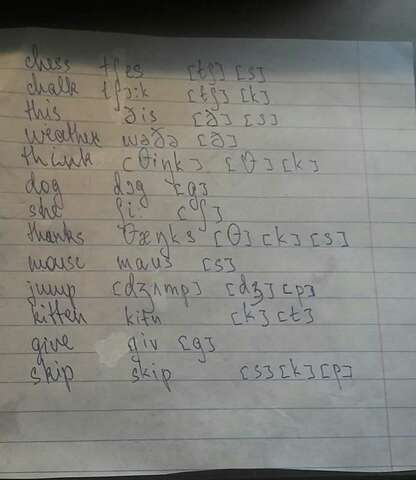 chess tʃes [tʃ] [s]
chalk tʃɔ:k [tʃ] [k]
this ðis [ð] [s]
weather weðə [ð]
think [θiŋk] [θ] [k]
dog dɔg [g]
she ʃi: [ʃ]
thanks θæŋks [θ] [k] [s]
mouse maus [s]
jump [dʒʌmp] [dʒ] [p]
kitten kitn [k] [t]
give giv [g]
skip skip [s] [k] [p]